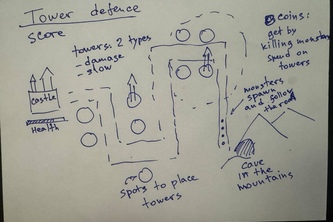 Tower defence
score
towers: 2 types
- damage
- slow
castle
Health
spots to place
towers
coins:
get by
killing monsters
spend on
towers
monsters
spawn
and follow
the road
cave
in the
mountains